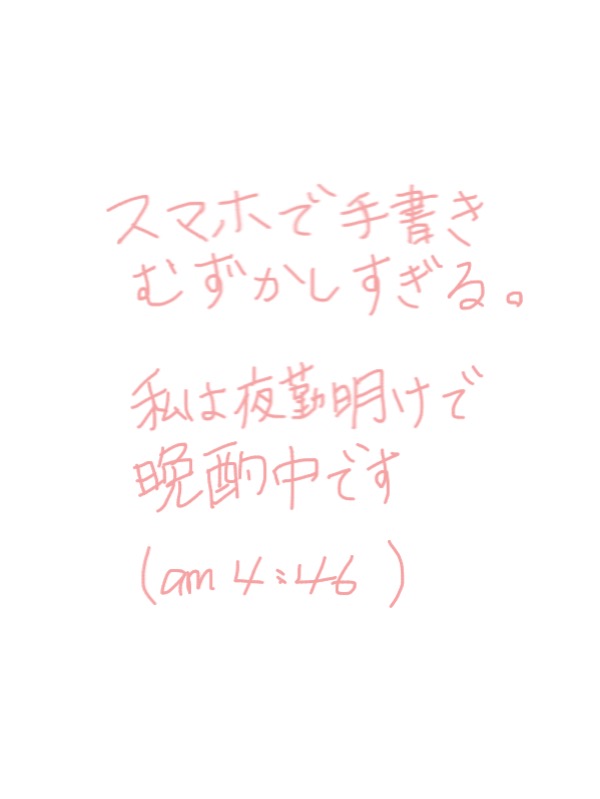 スマホで手書き
むずかしすぎる。
私は夜勤明けで
晩酌中です
(am 4:46 )